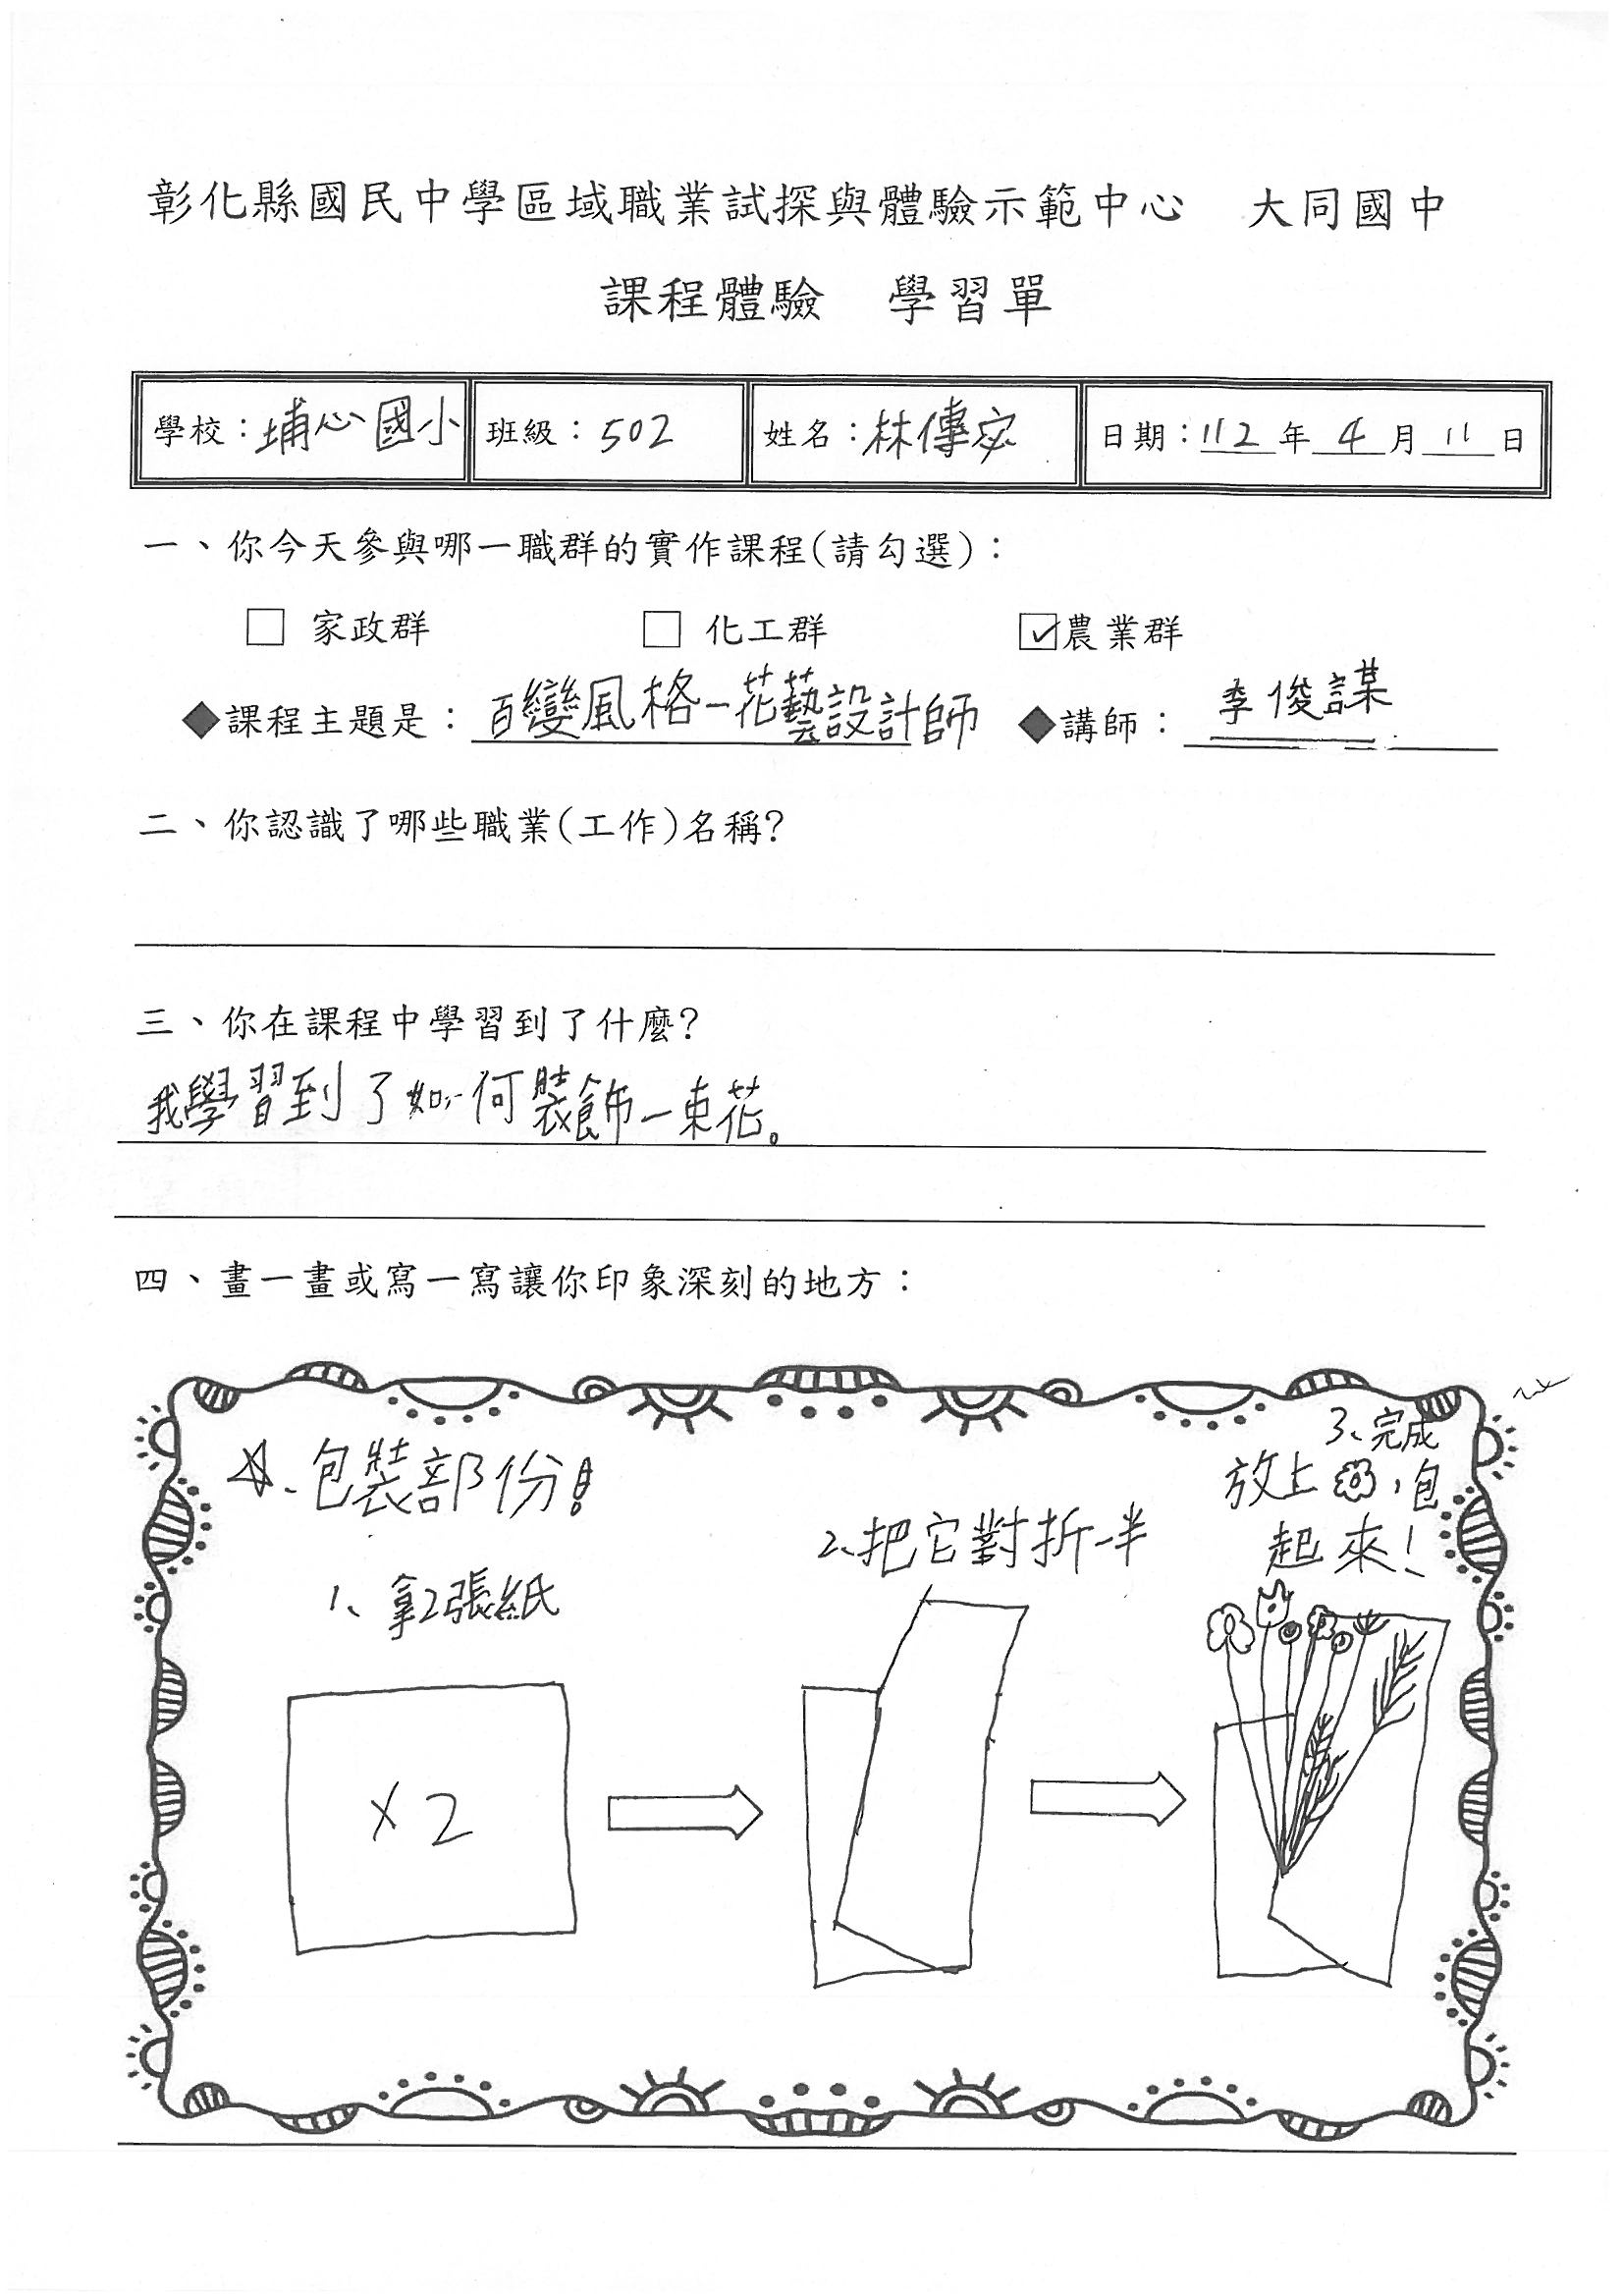 彰化縣國民中學區域職業試探與體驗示範中心 大同國中
課程體驗 學習單
學校：埔心國小 班級：502 姓名：林傳宓 日期：112年4月11日
一、你今天參與哪一職群的實作課程(請勾選)：
□ 家政群 □ 化工群 ☑農業群
◆課程主題是：百變風格－花藝設計師 ◆講師：李俊謀
二、你認識了哪些職業(工作)名稱?
三、你在課程中學習到了什麼?
我學習到了如何裝飾一束花。
四、畫一畫或寫一寫讓你印象深刻的地方：
☆、包裝部份！
1、拿2張紙
×2
2、把它對折一半
3、完成
放上，包
起來！